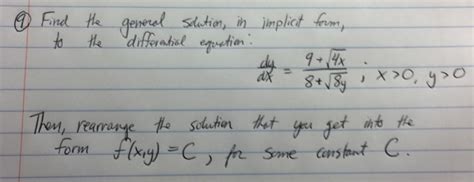 ⑨ Find the general solution, in implicit form,
to the differential equation:
dy/dx = (9+√4x)/(8+√8y) ; x>0, y>0
Then, rearrange the solution that you get into the
form f(x,y) = C, for some constant C.